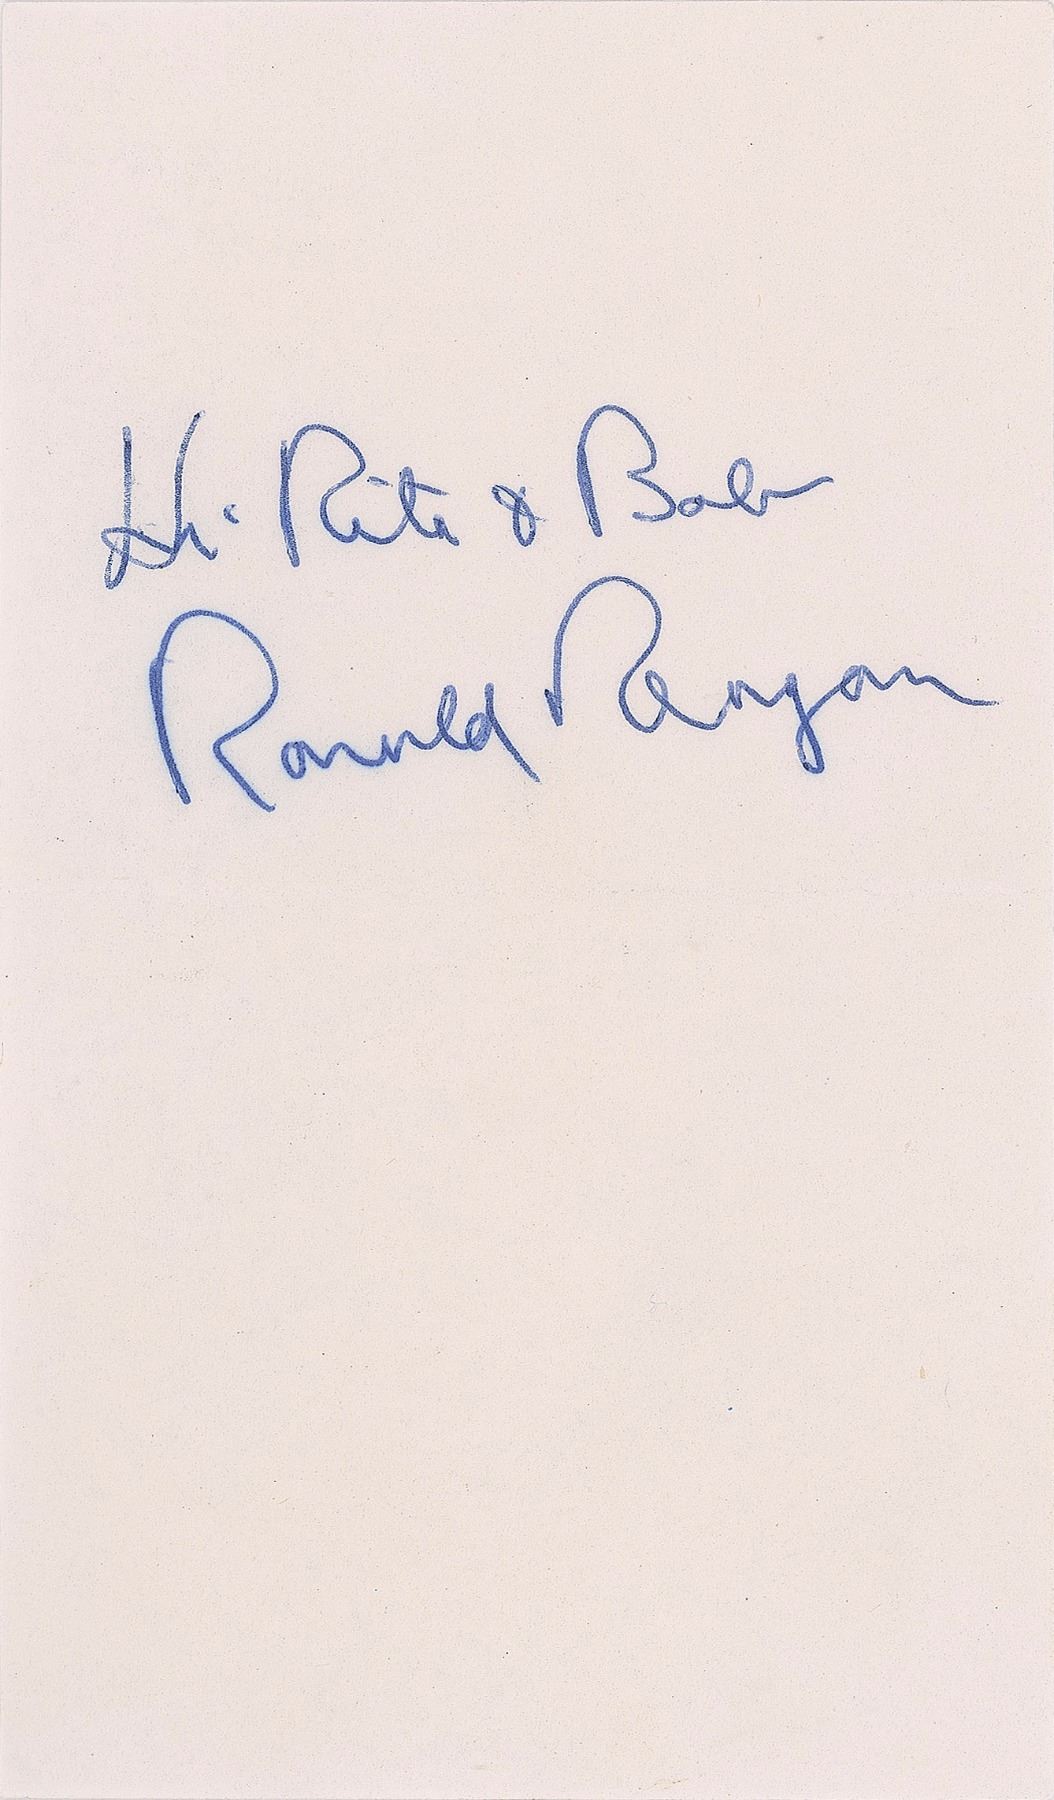 Hi Rita & Bob
Ronald Reagan